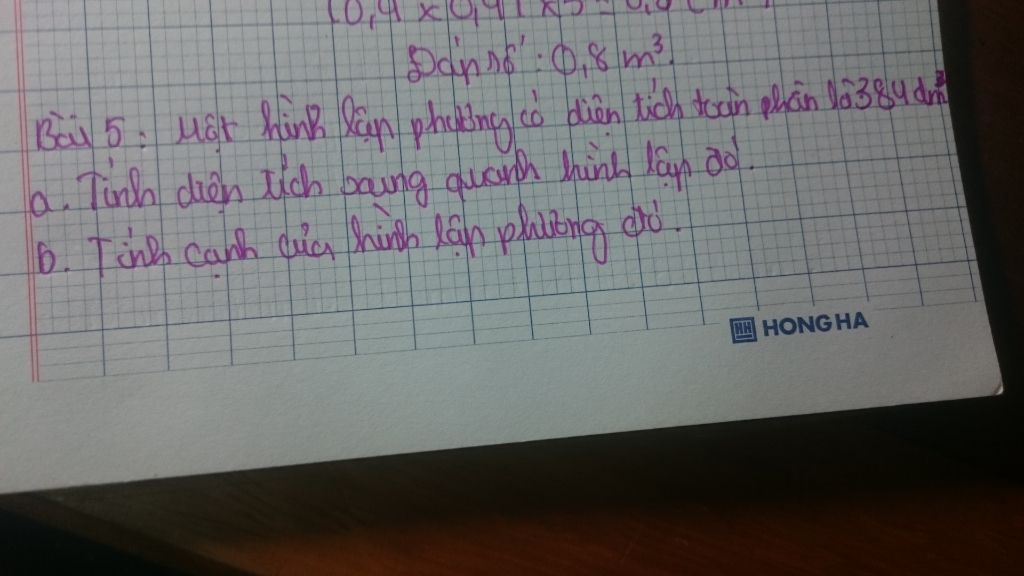 (0,4 x 0,4) x 5 = 0,8 (m
Đáp số : 0,8 m³
Bài 5 : Một hình lập phương có diện tích toàn phần là 384 dm²
a. Tính diện tích xung quanh hình lập đó.
b. Tính cạnh của hình lập phương đó.
HH HONG HA